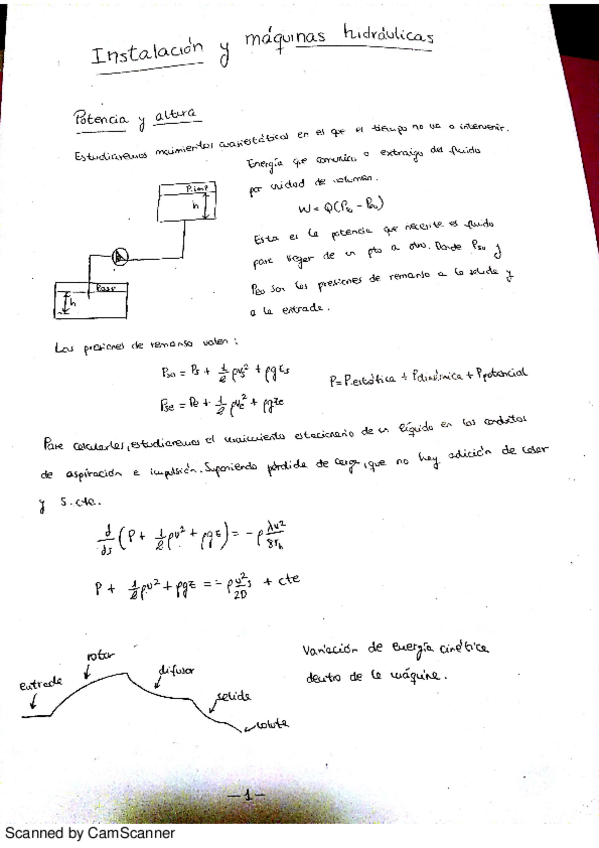 Instalación y máquinas hidráulicas
Potencia y altura
Estudiaremos movimientos cuasiestáticos en el que el tiempo no va a intervenir.
Energía que comunica o extraigo del fluido
por unidad de volumen.
W = Q(Pso - Peo)
Esta es la potencia que necesita el fluido
para llegar de un pto a otro. Donde Pso y
Peo son las presiones de remanso a la salida y
a la entrada.
P.imp
h
Pasp
h
Las presiones de remanso valen:
Pso = Ps + 1/2 ρvs² + ρgzs
Pse = Pe + 1/2 ρve² + ρgze
P = P.estática + Pdinámica + Ppotencial
Para calcularlas, estudiaremos el movimiento estacionario de un líquido en los conductos
de aspiración e impulsión. Suponiendo pérdida de carga, que no hay adición de calor
y S. cte.
d/ds (P + 1/2 ρv² + ρgz) = -ρ λv²/8rh
P + 1/2 ρv² + ρgz = -ρ v²s/2D + cte
entrada
rotor
difusor
salida
voluta
Variación de energía cinética
dentro de la máquina.
-1-
Scanned by CamScanner